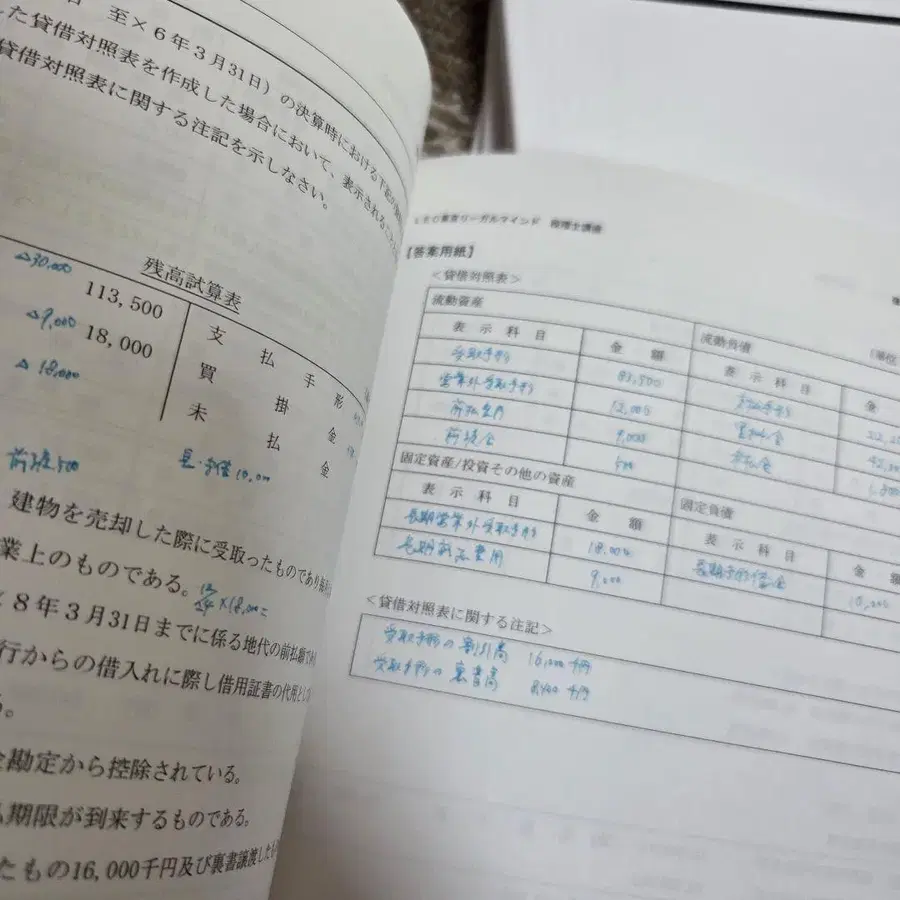 至×6年3月31日）の決算時における下記の
した貸借対照表を作成した場合において、表示されること
貸借対照表に関する注記を示しなさい。
残高試算表
△30,000
113,500
支払手形
△9,000
18,000
買掛金
△18,000
未払金
前渡500
長・手借10,000
建物を売却した際に受取ったものであり
業上のものである。
12/24×18,000=
×8年3月31日までに係る地代の前払額で
行からの借入れに際し借用証書の代用として
る。
金勘定から控除されている。
払期限が到来するものである。
たもの16,000千円及び裏書譲渡した
LEC東京リーガルマインド 税理士講座
【答案用紙】
＜貸借対照表＞
流動資産
流動負債
表示科目 金額 表示科目 金
受取手形 83,500 支払手形
営業外受取手形 12,000 買掛金
前払費用 9,000 未払金
前渡金 500 1,800
固定資産/投資その他の資産
固定負債
表示科目 金額 表示科目 金額
長期営業外受取手形 18,000 長期手形借入金 10,000
長期前払費用 9,000
＜貸借対照表に関する注記＞
受取手形の割引高 16,000千円
受取手形の裏書高 8,400千円